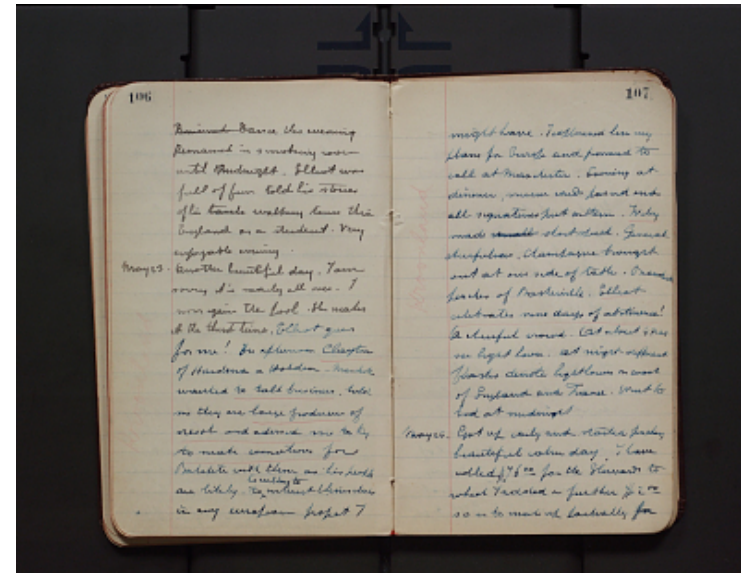 106
Dance this evening
Remained in smoking room
until midnight. Elliot was
full of fun told his stories
of his travels walking tours thro
England as a student. Very
enjoyable evening.
May 25. Another beautiful day. I am
sorry it is nearly all over. I
won again the Pool. She makes
it the third time. Elliot goes
for me! In afternoon
of a Holden.
wanted to talk business, told
me they are large producers of
and advised me to try
to make connections for
Bakelite with them as his people
are likely to interest themselves
in any european project I
107
might have. I informed him my
plans for Europe and promised to
call at Manchester. Evening at
dinner, menu cards passed and
all signatures put on them. Toby
made short speech. General
cheerfulness, Champagne brought
out at our side of table. One
Elliot
celebrates nine days of abstinence!
A cheerful crowd. At about
see light tower. At night different
flashes denote lighthouses on coast
of England and France. Went to
bed at midnight
May 26. Got up early and started packing
beautiful calm day. I have
for the Stewards to
which I added a further
so as to make up partially for